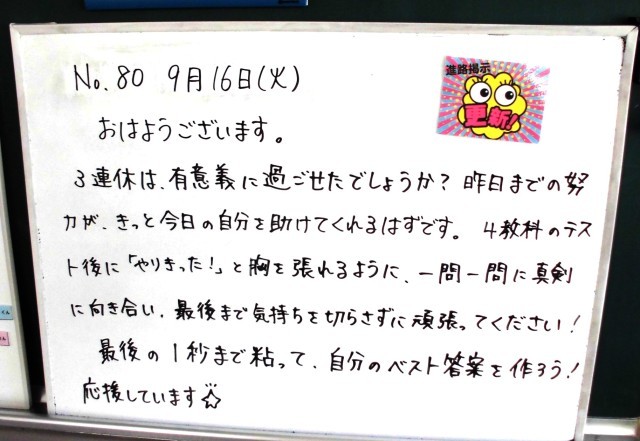 No.80 9月16日(火)
進路掲示
更新!
おはようございます。
3連休は、有意義に過ごせたでしょうか?昨日までの努
力が、きっと今日の自分を助けてくれるはずです。4教科のテス
ト後に「やりきった!」と胸を張れるように、一問一問に真剣
に向き合い、最後まで気持ちを切らさずに頑張ってください!
最後の1秒まで粘って、自分のベスト答案を作ろう!
応援しています☆